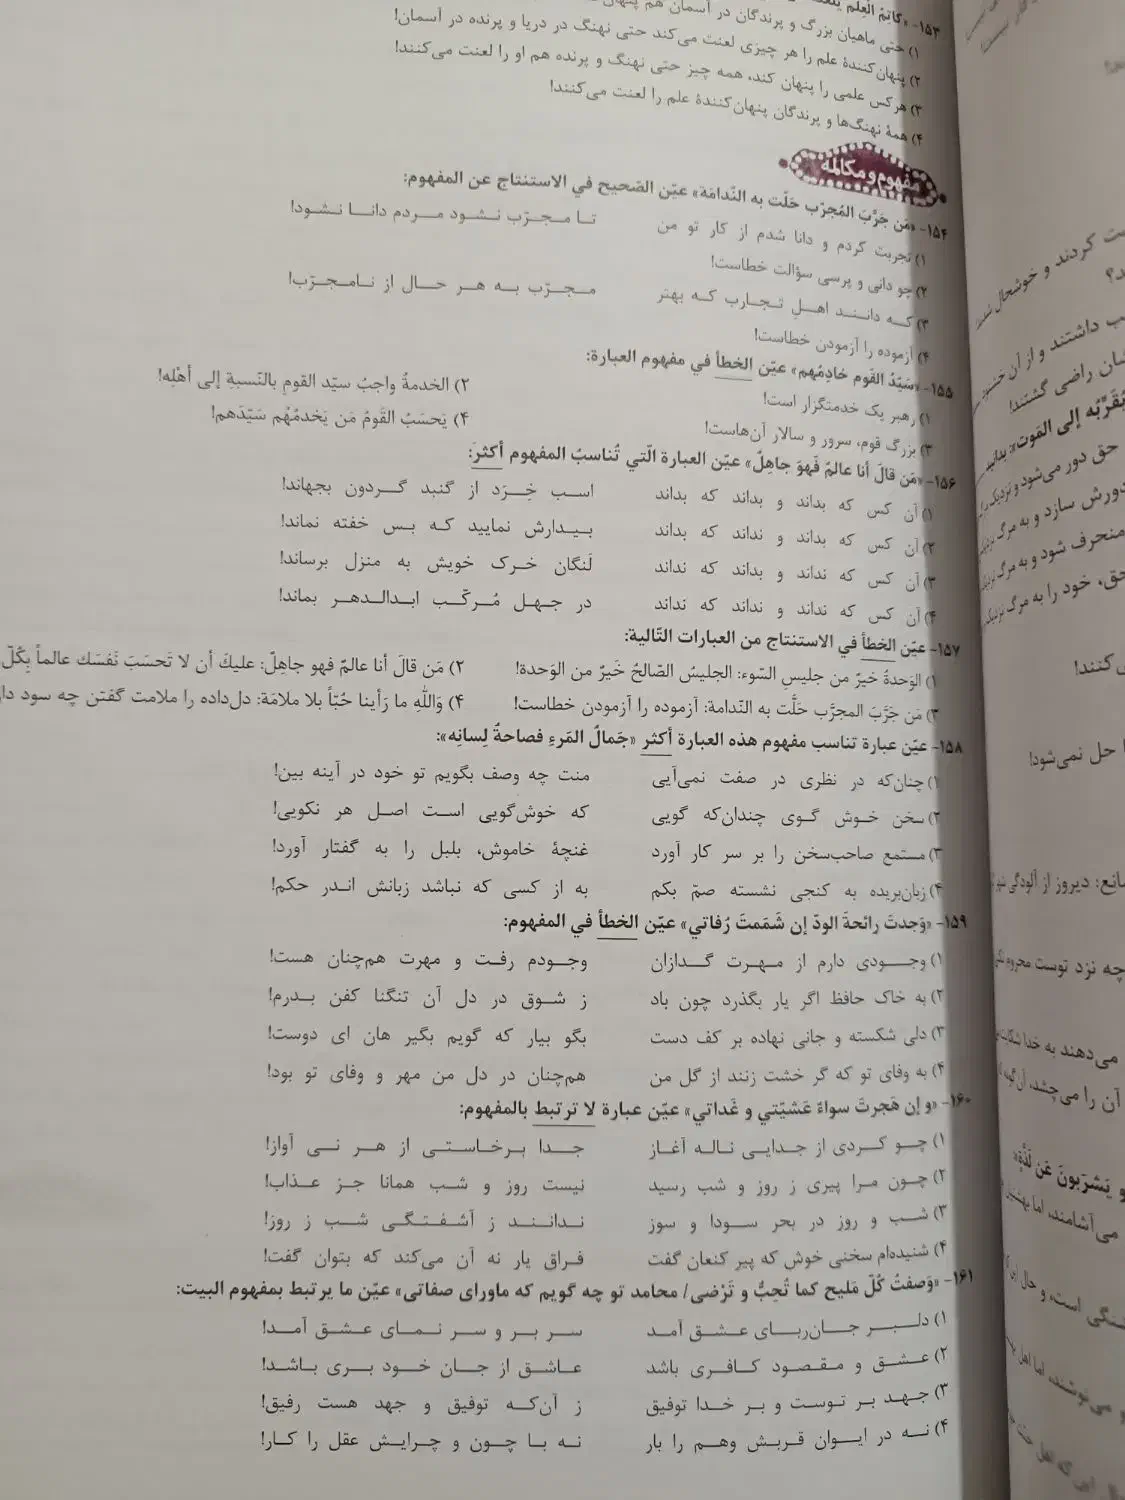 ۱۵۳- «کاتِمُ العِلم
۱) حتی ماهیان بزرگ و پرندگان در آسمان هم
۲) پنهان‌کنندهٔ علم را هر چیزی لعنت می‌کند حتی نهنگ در دریا و پرنده در آسمان!
۳) هرکس علمی را پنهان کند، همه چیز حتی نهنگ و پرنده هم او را لعنت می‌کنند!
۴) همهٔ نهنگ‌ها و پرندگان پنهان‌کنندهٔ علم را لعنت می‌کنند!
مفهوم و مکالمه
۱۵۴- «مَن جَرَّبَ المُجرّب حَلّت به النّدامَة» عیّن الصّحیح في الاستنتاج عن المفهوم:
۱) تجربت کردم و دانا شدم از کار تو من تا مـجـرّب نـشـود مـردم دانـا نـشود!
۲) چو دانی و پرسی سؤالت خطاست!
۳) کـه دانـنـد اهـلِ تـجـارب کـه بهتر مـجـرّب بـه هـر حـال از نـامـجـرّب!
۴) آزموده را آزمودن خطاست!
۱۵۵- «سَیّدُ القَوم خادِمُهم» عیّن الخطأ في مفهوم العبارة:
۱) رهبر یک خدمتگزار است! ۲) الخدمةُ واجبُ سیّد القومِ بالنّسبةِ إلی أهْلِه!
۳) بزرگ قوم، سرور و سالار آن‌هاست! ۴) یَحسَبُ القَومُ مَن یَخدمُهُم سَیّدَهم!
۱۵۶- «مَن قالَ أنا عالمٌ فَهوَ جاهِلٌ» عیّن العبارة الّتي تُناسبُ المفهوم أکثرَ:
۱) آن کس که بداند و بداند که بداند اسب خِـرَد از گنبد گـردون بجهاند!
۲) آن کس که بداند و نداند که بداند بـیـدارش نمایید کـه بـس خفته نماند!
۳) آن کس که نداند و بداند که نداند لَنگان خـرک خویش به منزل برساند!
۴) آن کس که نداند و نداند که نداند در جـهـل مُـرکّـب ابـدالـدهـر بماند!
۱۵۷- عیّن الخطأ في الاستنتاج من العبارات التّالیة:
۱) الوَحدةُ خیرٌ من جلیسِ السّوء: الجلیسُ الصّالحُ خَیرٌ من الوَحدة! ۲) مَن قالَ أنا عالمٌ فهو جاهِلٌ: علیكَ أن لا تَحسَبَ نَفسَك عالماً بِکُلّ
۳) مَن جَرَّبَ المجرَّب حَلَّت به النّدامة: آزموده را آزمودن خطاست! ۴) وَاللّٰهِ ما رَأینا حُبّاً بلا ملامَة: دل‌داده را ملامت گفتن چه سود
۱۵۸- عیّن عبارة تناسب مفهوم هذه العبارة أکثر «جَمالُ المَرءِ فصاحةُ لِسانِه»:
۱) چنان‌که در نظری در صفت نمی‌آیی منت چه وصف بگویم تو خود در آینه بین!
۲) سخن خـوش گـوی چندان‌که گویی که خوش‌گویی است اصـل هر نکویی!
۳) مستمع صاحب‌سخن را بر سر کار آورد غنچهٔ خاموش، بلبل را به گفتار آورد!
۴) زبان‌بریده به کنجی نشسته صمّ بکم به از کسی که نباشد زبانش انـدر حکم!
۱۵۹- «وَجدتَ رائحةَ الودّ إن شَمَمتَ رُفاتي» عیّن الخطأ في المفهوم:
۱) وجــودی دارم از مـهـرت گــدازان وجـودم رفـت و مهرت هم‌چنان هست!
۲) به خاک حافظ اگر یار بگذرد چون باد ز شـوق در دل آن تنگنا کفن بـدرم!
۳) دلی شکسته و جانی نهاده بر کف دست بگو بیار که گویم بگیر هان ای دوست!
۴) به وفای تو که گر خشت زنند از گل من هم‌چنان در دل من مهر و وفای تو بود!
۱۶۰- «و إن هَجرتَ سواءٌ عَشیّتي و غَداتي» عیّن عبارة لا ترتبط بالمفهوم:
۱) چـو کـردی از جـدایی نـاله آغاز جـدا بـرخـاسـتـی از هـر نـی آواز!
۲) چـون مـرا پیری ز روز و شب رسید نیست روز و شب همانا جز عـذاب!
۳) شـب و روز در بحر سـودا و سوز نـدانـنـد ز آشـفـتـگـی شـب ز روز!
۴) شنیده‌ام سخنی خوش که پیر کنعان گفت فراق یار نه آن می‌کند که بتوان گفت!
۱۶۱- «وَصفتُ کُلّ مَلیحٍ کما تُحِبُّ و تَرْضی/ محامد تو چه گویم که ماورای صفاتی» عیّن ما یرتبط بمفهوم البیت:
۱) دلـبـر جـان‌ربـای عـشـق آمـد سـر بـر و سـر نـمـای عـشـق آمـد!
۲) عـشـق و مـقـصود کـافـری باشد عـاشـق از جـان خـود بـری بـاشـد!
۳) جـهـد بـر تـوسـت و بـر خـدا توفیق ز آن‌کـه توفیق و جهد هست رفیق!
۴) نـه در ایـوان قـربـش وهـم را بار نـه بـا چـون و چـرایـش عقل را کـار!
ت کردند و خوشحال شدند
ب داشتند و از آن خشنود
شان راضی گشتند!
یُقَرِّبُه إلی المَوت»: بدانید
حق دور می‌شود و نزدیک
دورش سازد و به مرگ
منحرف شود و به مرگ
حق، خود را به مرگ نزدیک
حل نمی‌شود!
دیروز از آلودگی
چه نزد توست محروم
می‌دهند به خدا شکایت
آن را می‌چشد،
و یَشرَبونَ عَن لَذَّةٍ»
می‌آشامند، اما